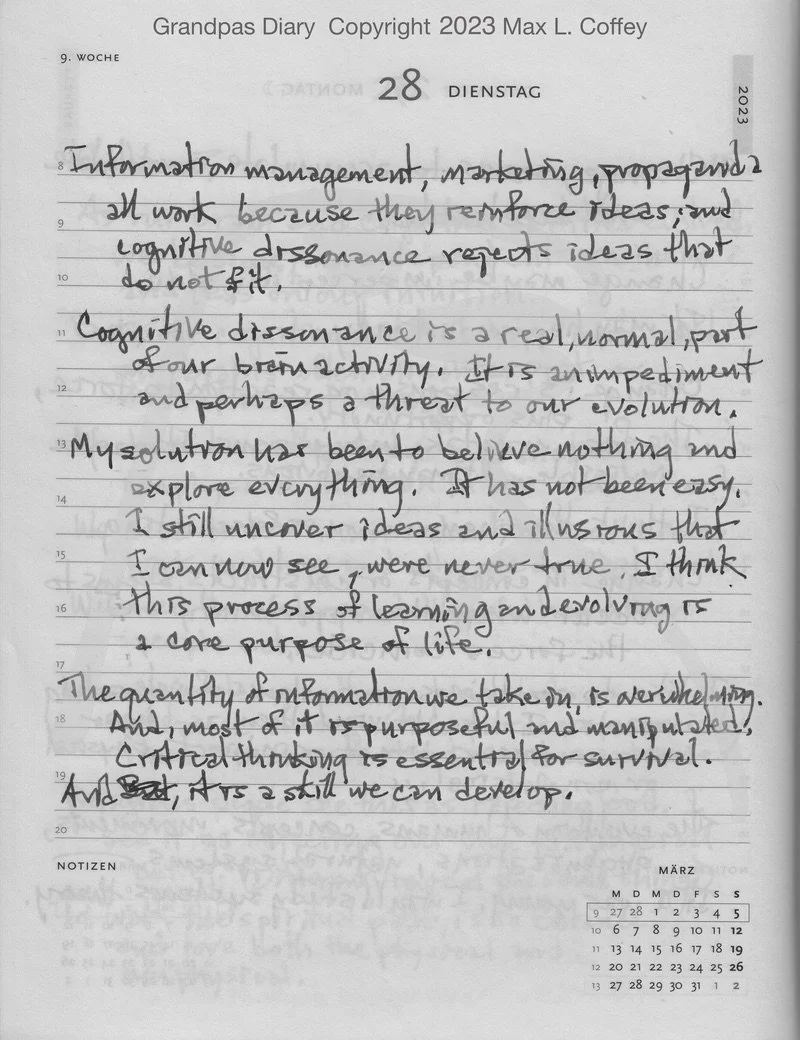 Grandpas Diary Copyright 2023 Max L. Coffey
9. WOCHE
28 DIENSTAG
2023
8 Information management, marketing, propaganda
all work because they reinforce ideas; and
9
cognitive dissonance rejects ideas that
10 do not fit.
11 Cognitive dissonance is a real, normal, part
of our brain activity. It is an impediment
12
and perhaps a threat to our evolution.
13 My solution has been to believe nothing and
explore everything. It has not been easy.
14
I still uncover ideas and illusions that
15 I can now see, were never true. I think
16 this process of learning and evolving is
a core purpose of life.
17
The quantity of information we take in, is overwhelming.
18 And, most of it is purposeful and manipulated.
Critical thinking is essential for survival.
19
And, it is a skill we can develop.
20
NOTIZEN
MÄRZ
M D M D F S S
9 27 28 1 2 3 4 5
10 6 7 8 9 10 11 12
11 13 14 15 16 17 18 19
12 20 21 22 23 24 25 26
13 27 28 29 30 31 1 2